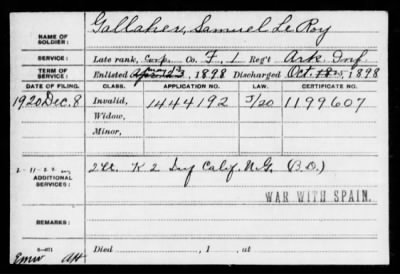 NAME OF SOLDIER: Gallaher, Samuel Le Roy
SERVICE: Late rank, Corp. Co. F, 1 Reg't Ark. Inf
TERM OF SERVICE: Enlisted 1898 Discharged Oct. 1898
DATE OF FILING. CLASS. APPLICATION NO. LAW. CERTIFICATE NO.
1920 Dec. 8 Invalid, 1444192 5/20 1199607
Widow,
Minor,
ADDITIONAL SERVICES: 2 Lt. K 2 Inf Calif. N.G. (B.D.)
WAR WITH SPAIN.
REMARKS:
Died , 1 , at
Emw AH